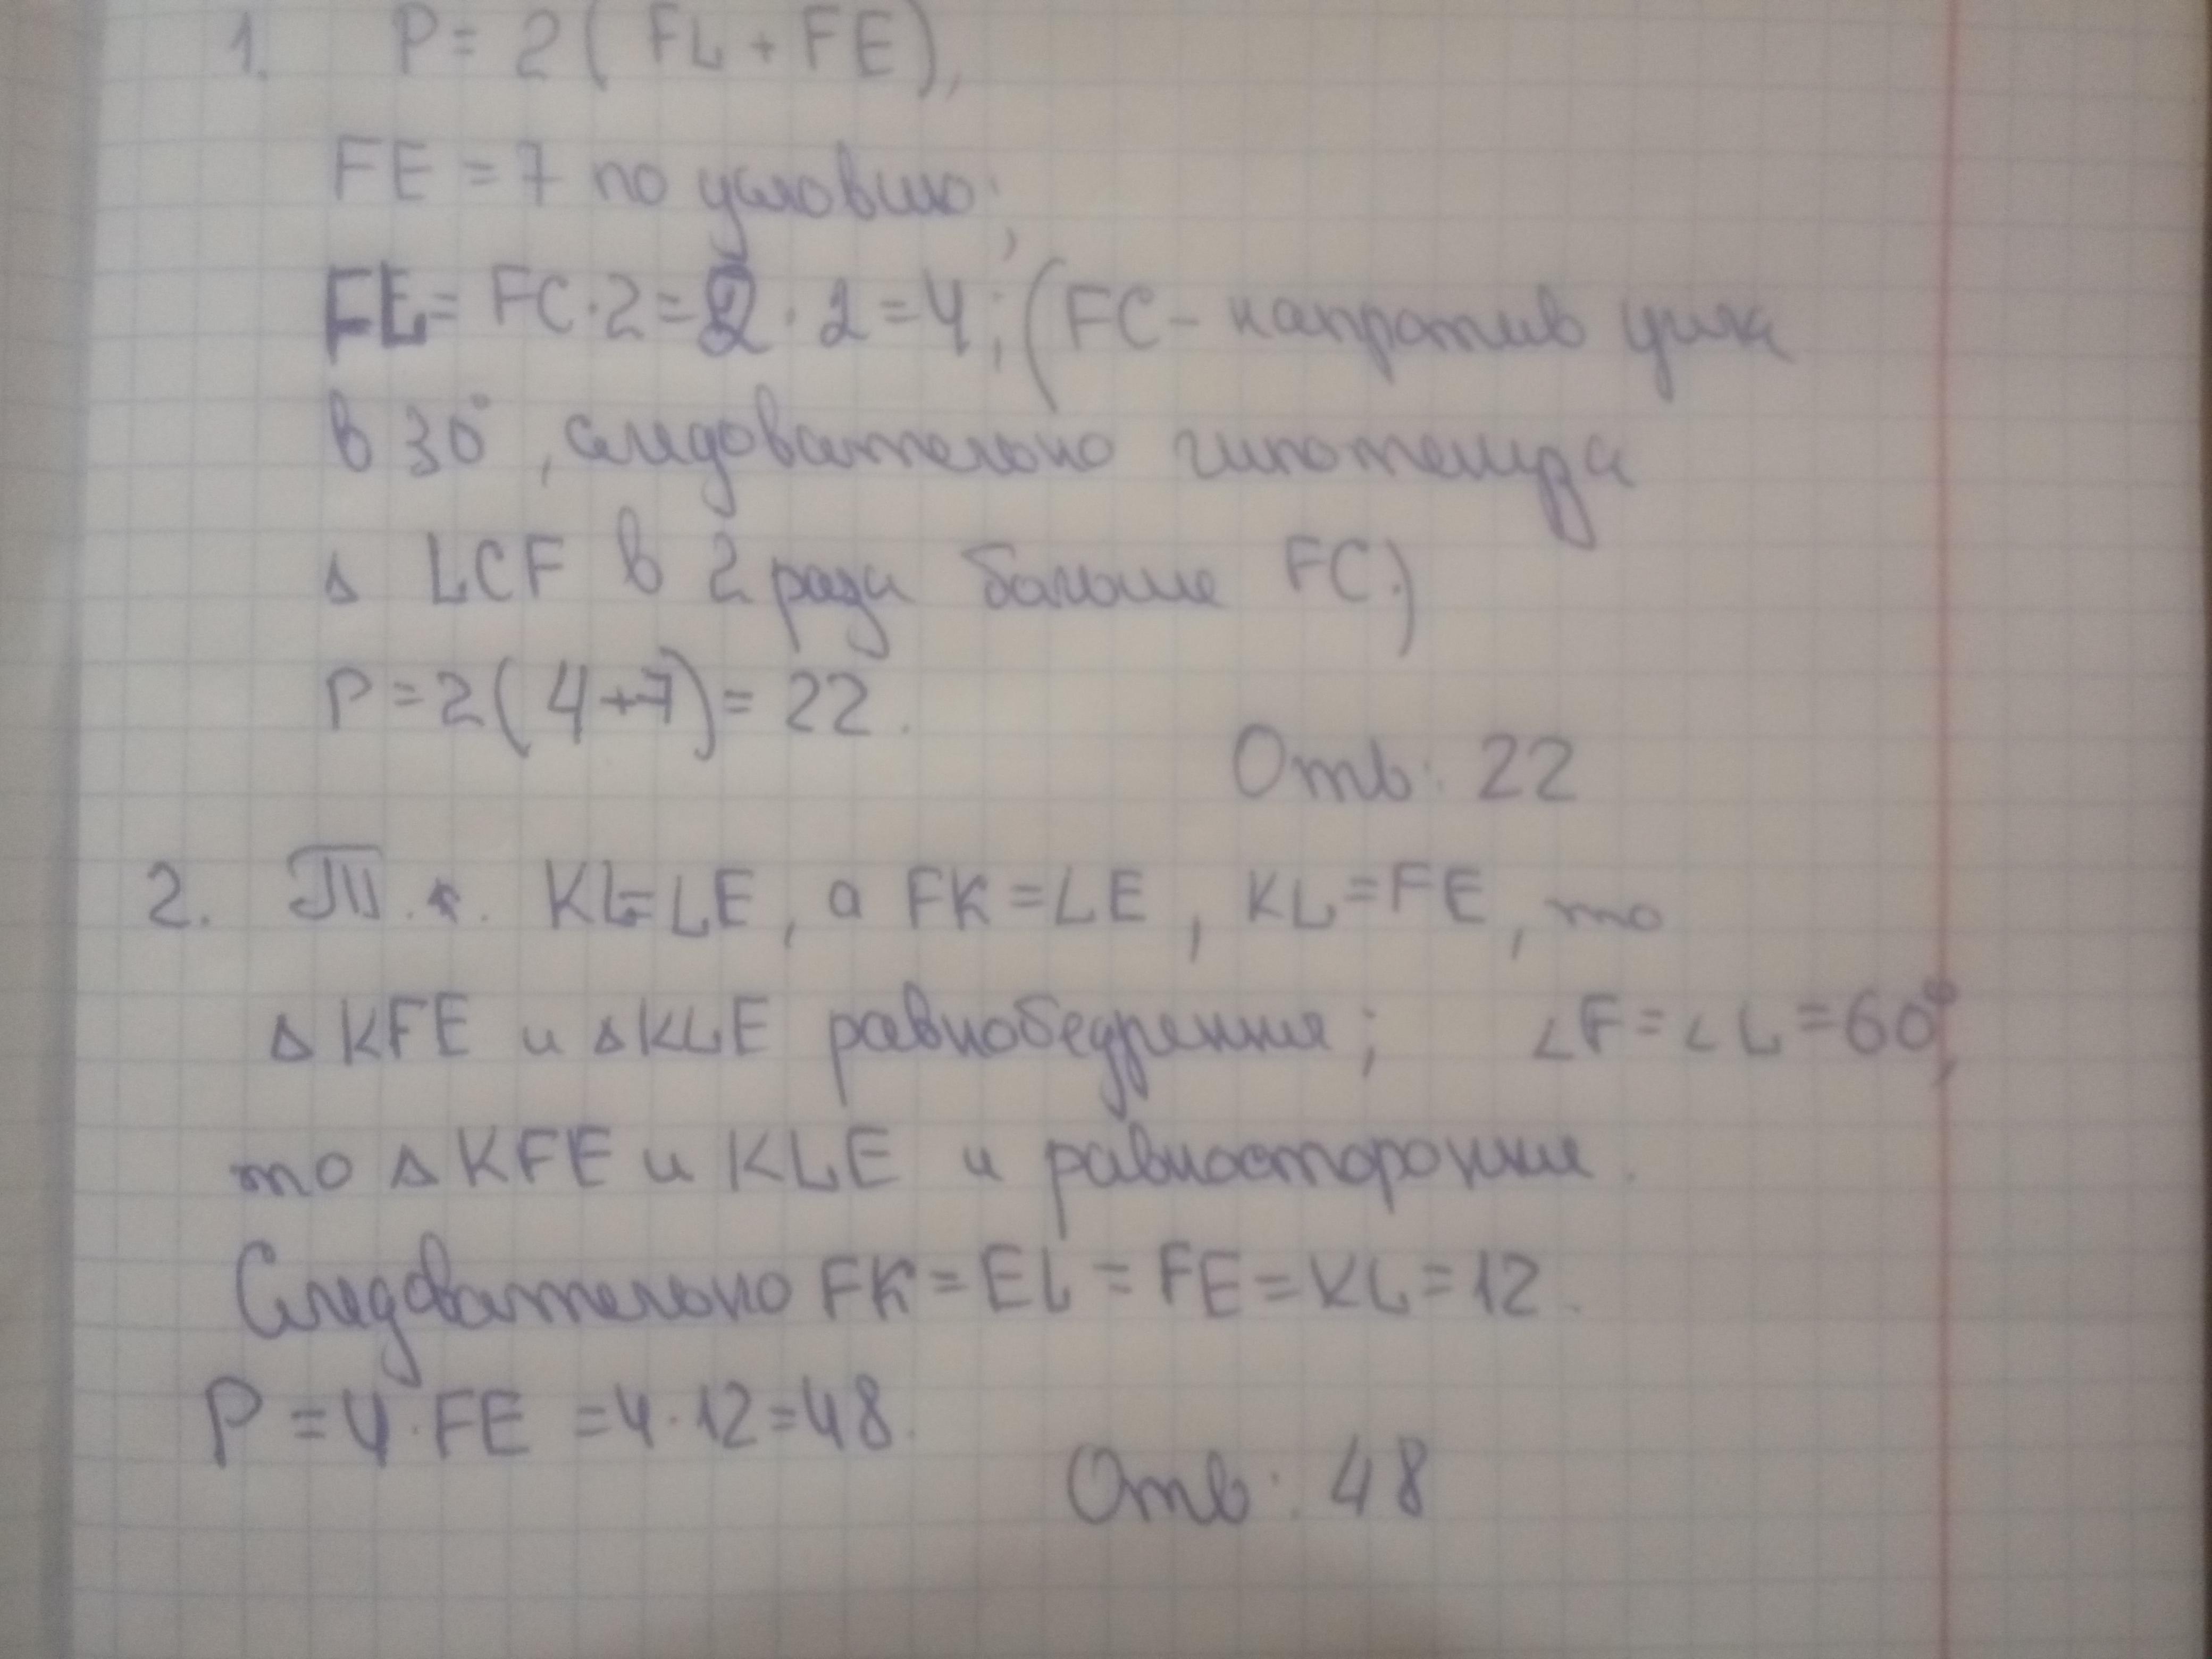 1. P = 2 ( FL + FE),
FE = 7 по условию;
FL = FC · 2 = 2 · 2 = 4; (FC - напротив угла
в 30°, следовательно гипотенуза
Δ LCF в 2 раза больше FC.)
P = 2( 4+7) = 22.
Отв: 22
2. Т.к. KL = LE, а FK = LE, KL = FE, то
Δ KFE и Δ KLE равнобедренные; ∠F = ∠L = 60°,
то Δ KFE и KLE и равносторонние.
Следовательно FK = EL = FE = KL = 12.
P = 4 · FE = 4 · 12 = 48.
Отв: 48